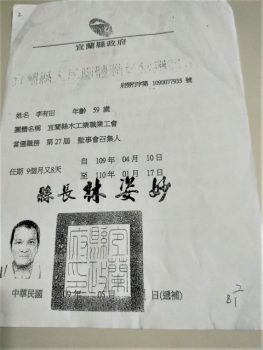 2.
宜蘭縣政府
府勞行字第 1090077935 號
姓名 李有田 年齡 59 歲
團體名稱 宜蘭縣木工業職業工會
當選職務 第27屆 監事會召集人
自 109 年 04 月 10 日
任期 9個月又8天
至 110 年 01 月 17 日
縣長 林姿妙
宜蘭縣政府印
中華民國 109 年 05 月 日(遞補)